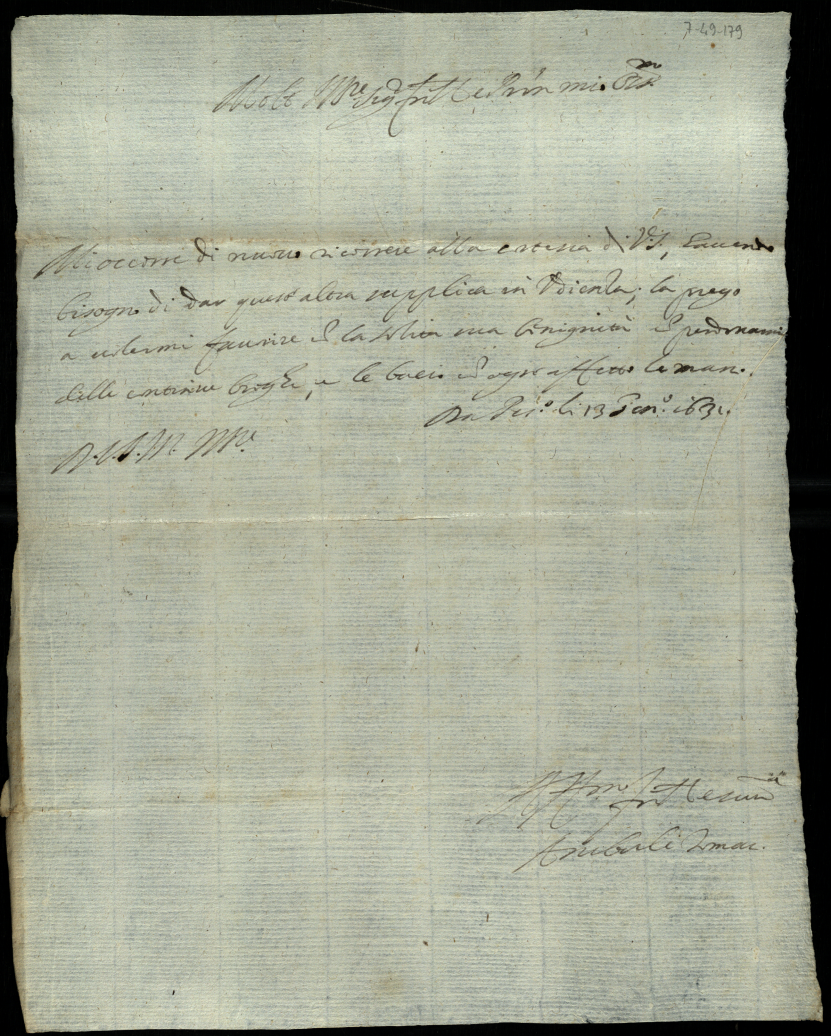 7-49-179
Molto Ill.re Sig.r fr̃llo e Prõn mio Oss.mo
Mi occorre di nuovo ricorrere alla cortesia di V.S., havendo
bisogno di dar quest'altra supplica in Udienza; la prego
a volermi favorire cõ la solita sua benignità e perdonarmi
delle continue brighe, e le bacio cõ ogni affetto le mani.
Da Pes.o li 13 Gen.o 1631.
D.V.S.M. Ill.re
Aff.mo fr̃llo e ser.re